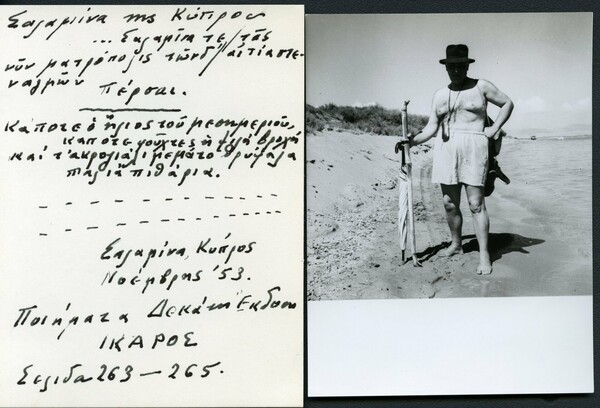 Σαλαμίνα της Κύπρου
... Σαλαμῖνά τε / τᾶς
νῦν ματρόπολις τῶνδ / αἰτία στε-
ναγμῶν
Πέρσαι.
Κάποτε ὁ ἥλιος τοῦ μεσημεριοῦ,
κάποτε φοῦχτες ἡ ψιλή βροχή
καί τ' ἀκρογιάλι γεμάτο θρύψαλα
παλιά πιθάρια.
Σαλαμίνα, Κύπρος
Νοέμβρης '53.
Ποιήματα Δεκάτη Έκδοση
ΙΚΑΡΟΣ
Σελίδα 263 — 265.